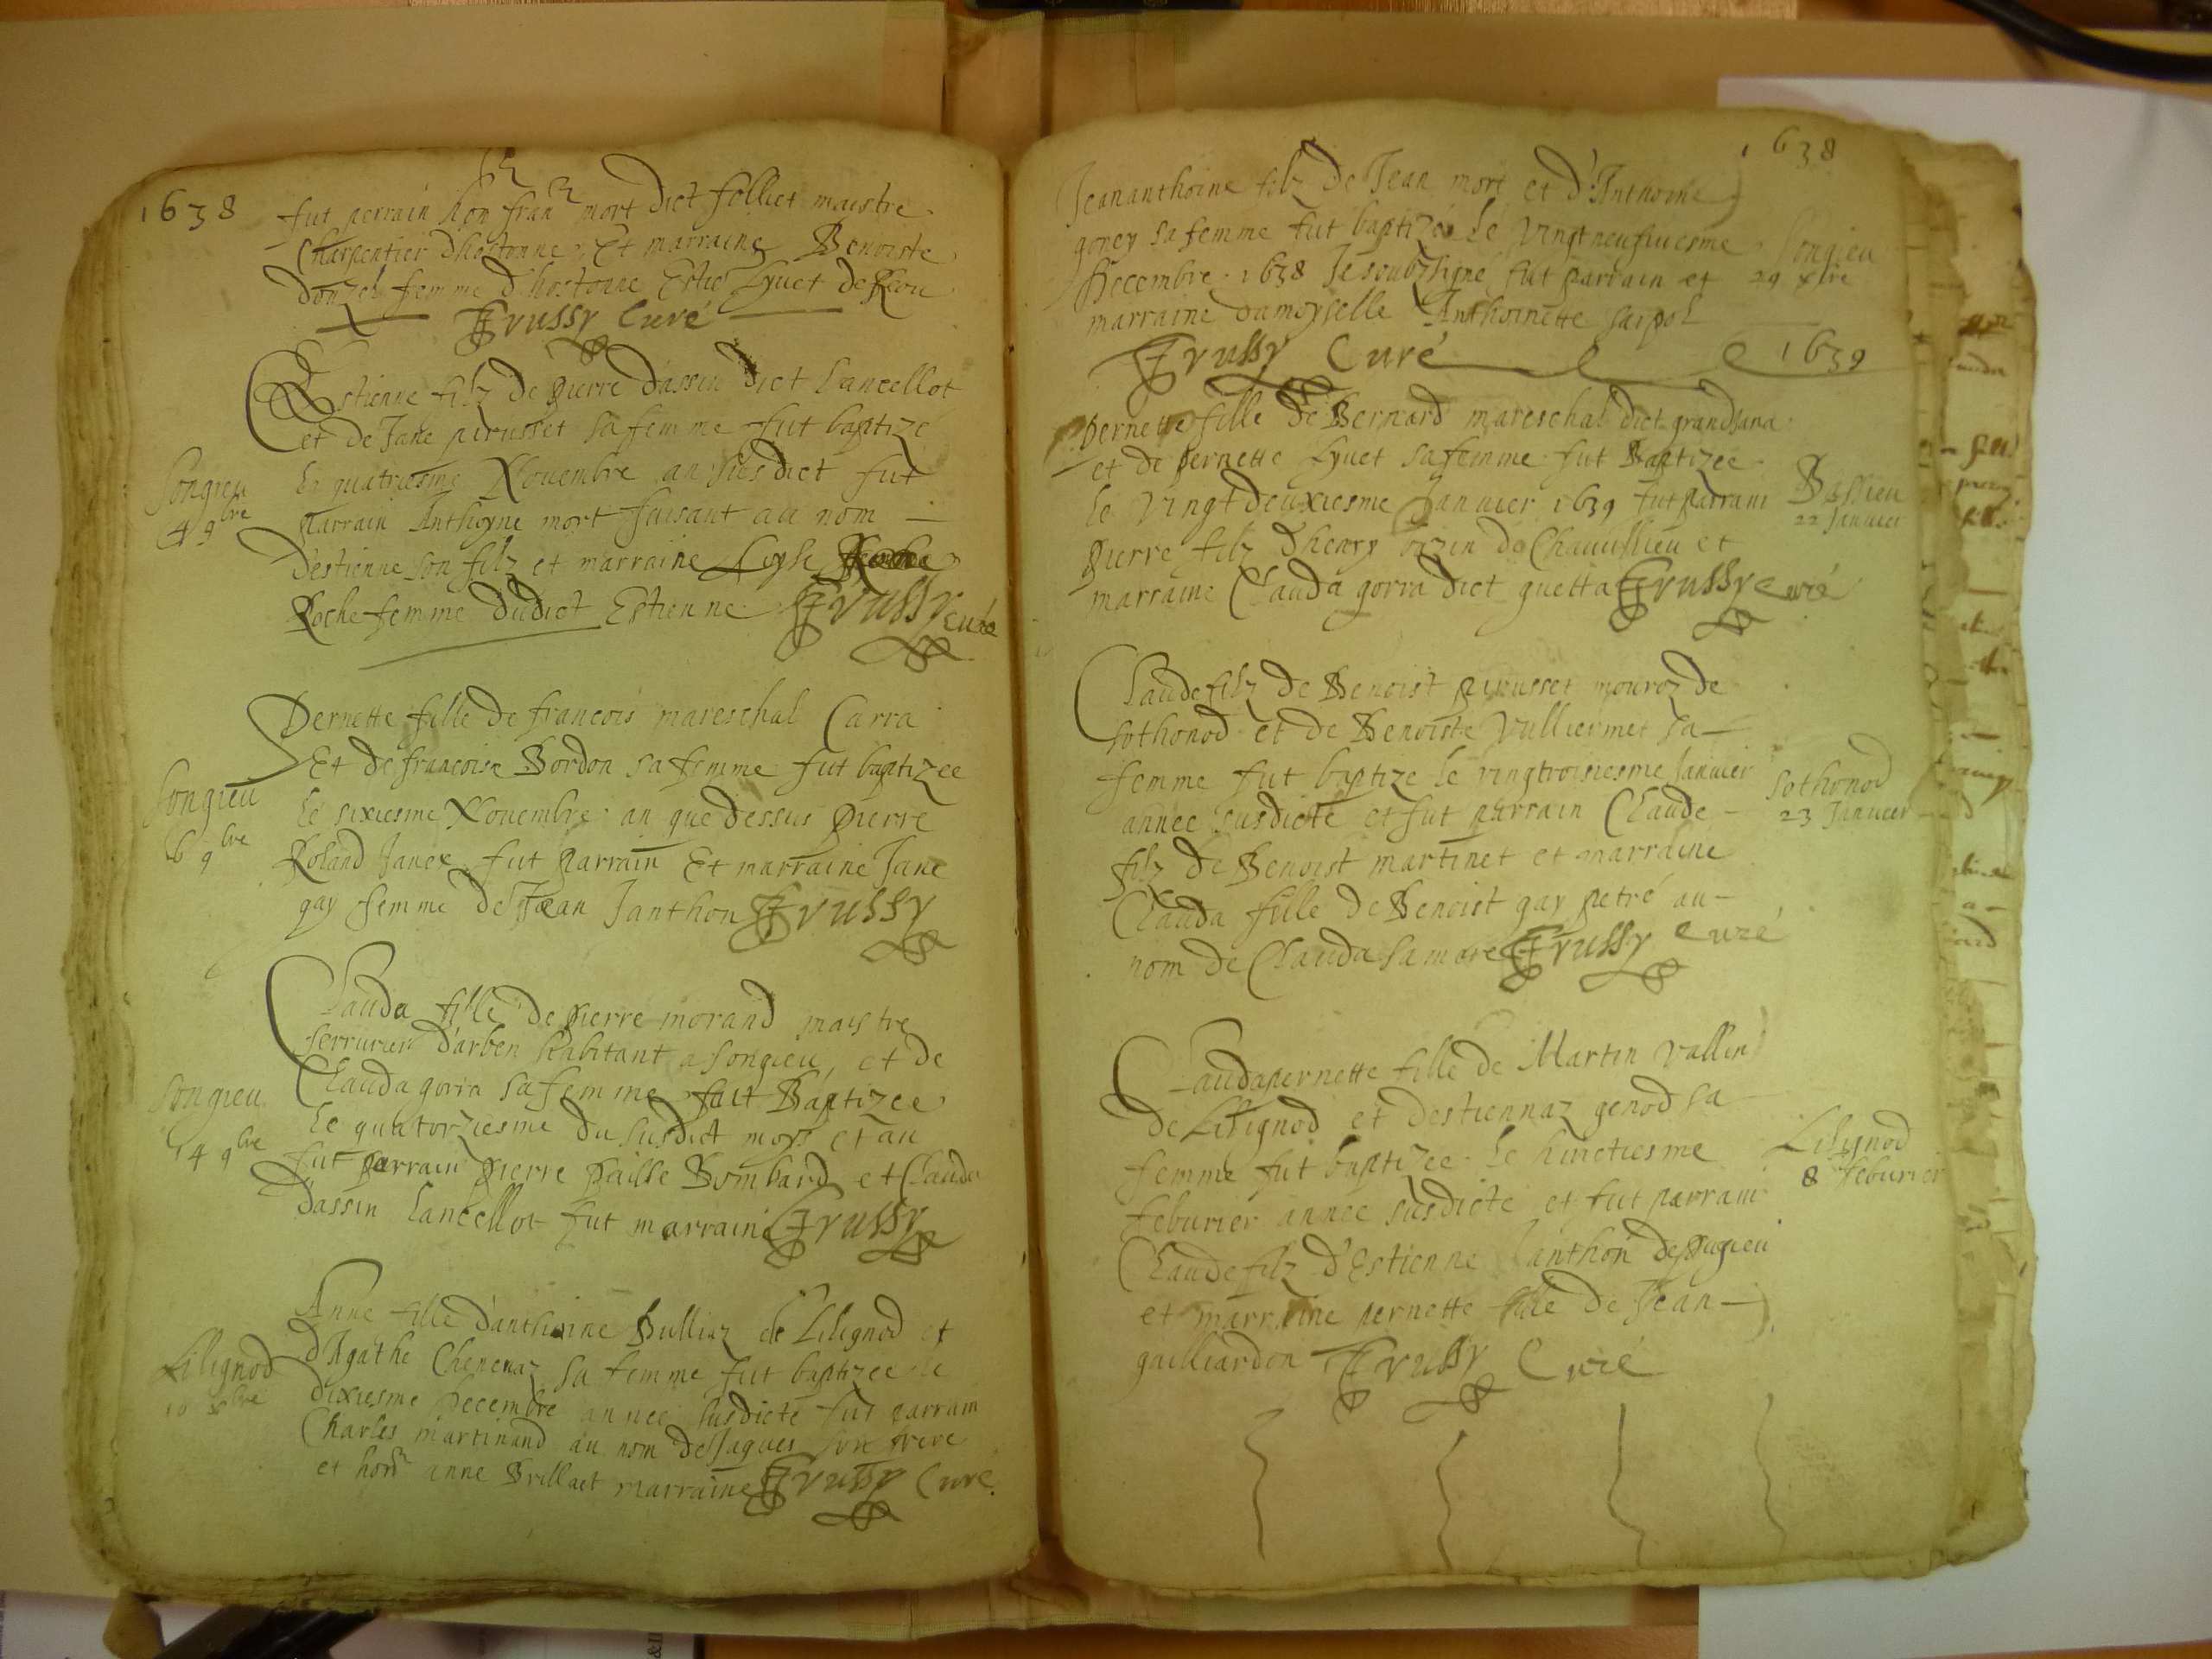 1638
fut perrain hon fran mort dict folliet maistre
Charpentier d'hostonne, Et marraine Benoiste
donzel femme d'hostonne Estie Lyuet de
Trussy Curé
Estienne filz de pierre dassin dict Lancellot
et de Jane pirusset sa femme fut baptize
Songieu
4 9bre
le quatriesme Nouembre an susdict fut
parrain Anthoyne mort faisant au nom
d'estienne son filz et marraine Loyse
Roche femme dudict Estienne Trussy curé
Pernette fille de francois mareschal Carra
Et de francoise Bordon sa femme fut baptizee
Songieu
6 9bre
le sixiesme Nouembre an que dessus pierre
Roland Janex fut parrain Et marraine Jane
gay femme de Jean Janthon Trussy
Clauda fille de pierre morand maistre
serrurier d'arben habitant a songieu, et de
Clauda gorra sa femme fut Baptizee
Songieu
14 9bre
le quatorziesme du susdict moys et an
fut parrain pierre paille Bombard et Clauda
dassin Lancellot fut marraine Trussy
Anne fille d'anthoine Bulliaz de Lilignod et
Lilignod
10 xbre
d'Agathe Chenenaz sa femme fut baptizee le
dixiesme Decembre annee susdicte fut parrain
Charles martinand au nom de Jaques son frere
et hon anne Brillaet marraine Trussy Curé.
1638
Jeananthoine filz de Jean mort et d'Anthoine
goney sa femme fut baptizé le vingtneufuiesme
Songieu
29 xbre
Decembre 1638 Je soubzsigné fut parrain et
marraine damoyselle Anthoinette sarpol
Trussy Curé
1639
pernette fille de Bernard mareschal dict grandjana
et de pernette Lyuet sa femme fut Baptizee
Bassieu
22 Januier
le vingtdeuxiesme Januier 1639 fut parrain
pierre filz d'henry bizen de Chauillieu et
marraine Clauda gorra dict guetta Trussy curé
Claude filz de Benoist pirusset mouroz de
sothonod et de Benoiste vulliermet sa
Sothonod
23 Januier
femme fut baptize le vingtroisiesme Januier
annee susdicte et fut parrain Claude
filz de Benoist martinet et marraine
Clauda fille de Benoist gay petré au
nom de Clauda sa mere Trussy curé
Claudapernette fille de Martin vallin
de Lilignod et destiennaz genod sa
Lilignod
8 feburier
femme fut baptizee le huictiesme
feburier annee susdicte et fut parrain
Claude filz d'Estienne Janthon de sugieu
et marraine pernette fille de Jean
gailliardon Trussy Curé